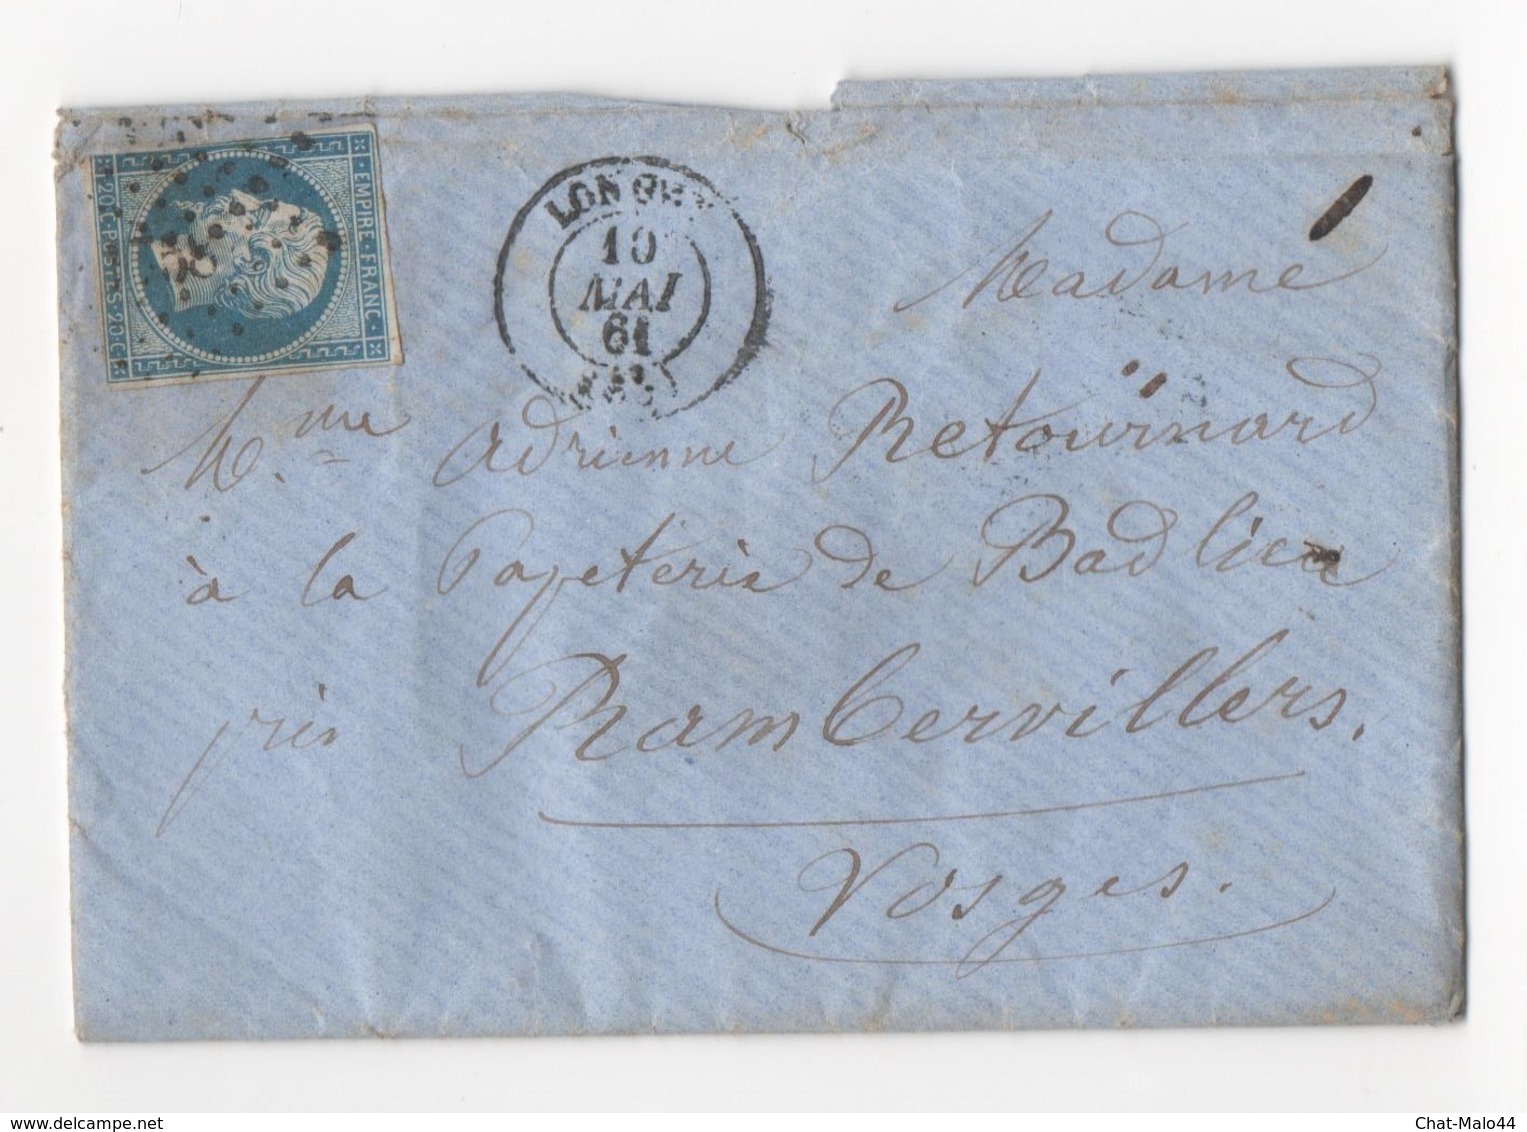 EMPIRE · FRANC ·
20 · C · POSTES · 20 · C
10
MAI
61
Madame
Mme Adrienne Retournard
à la Papeterie de Badlieu
près Rambervillers.
Vosges.
www.delcampe.net
Chat-Malo44